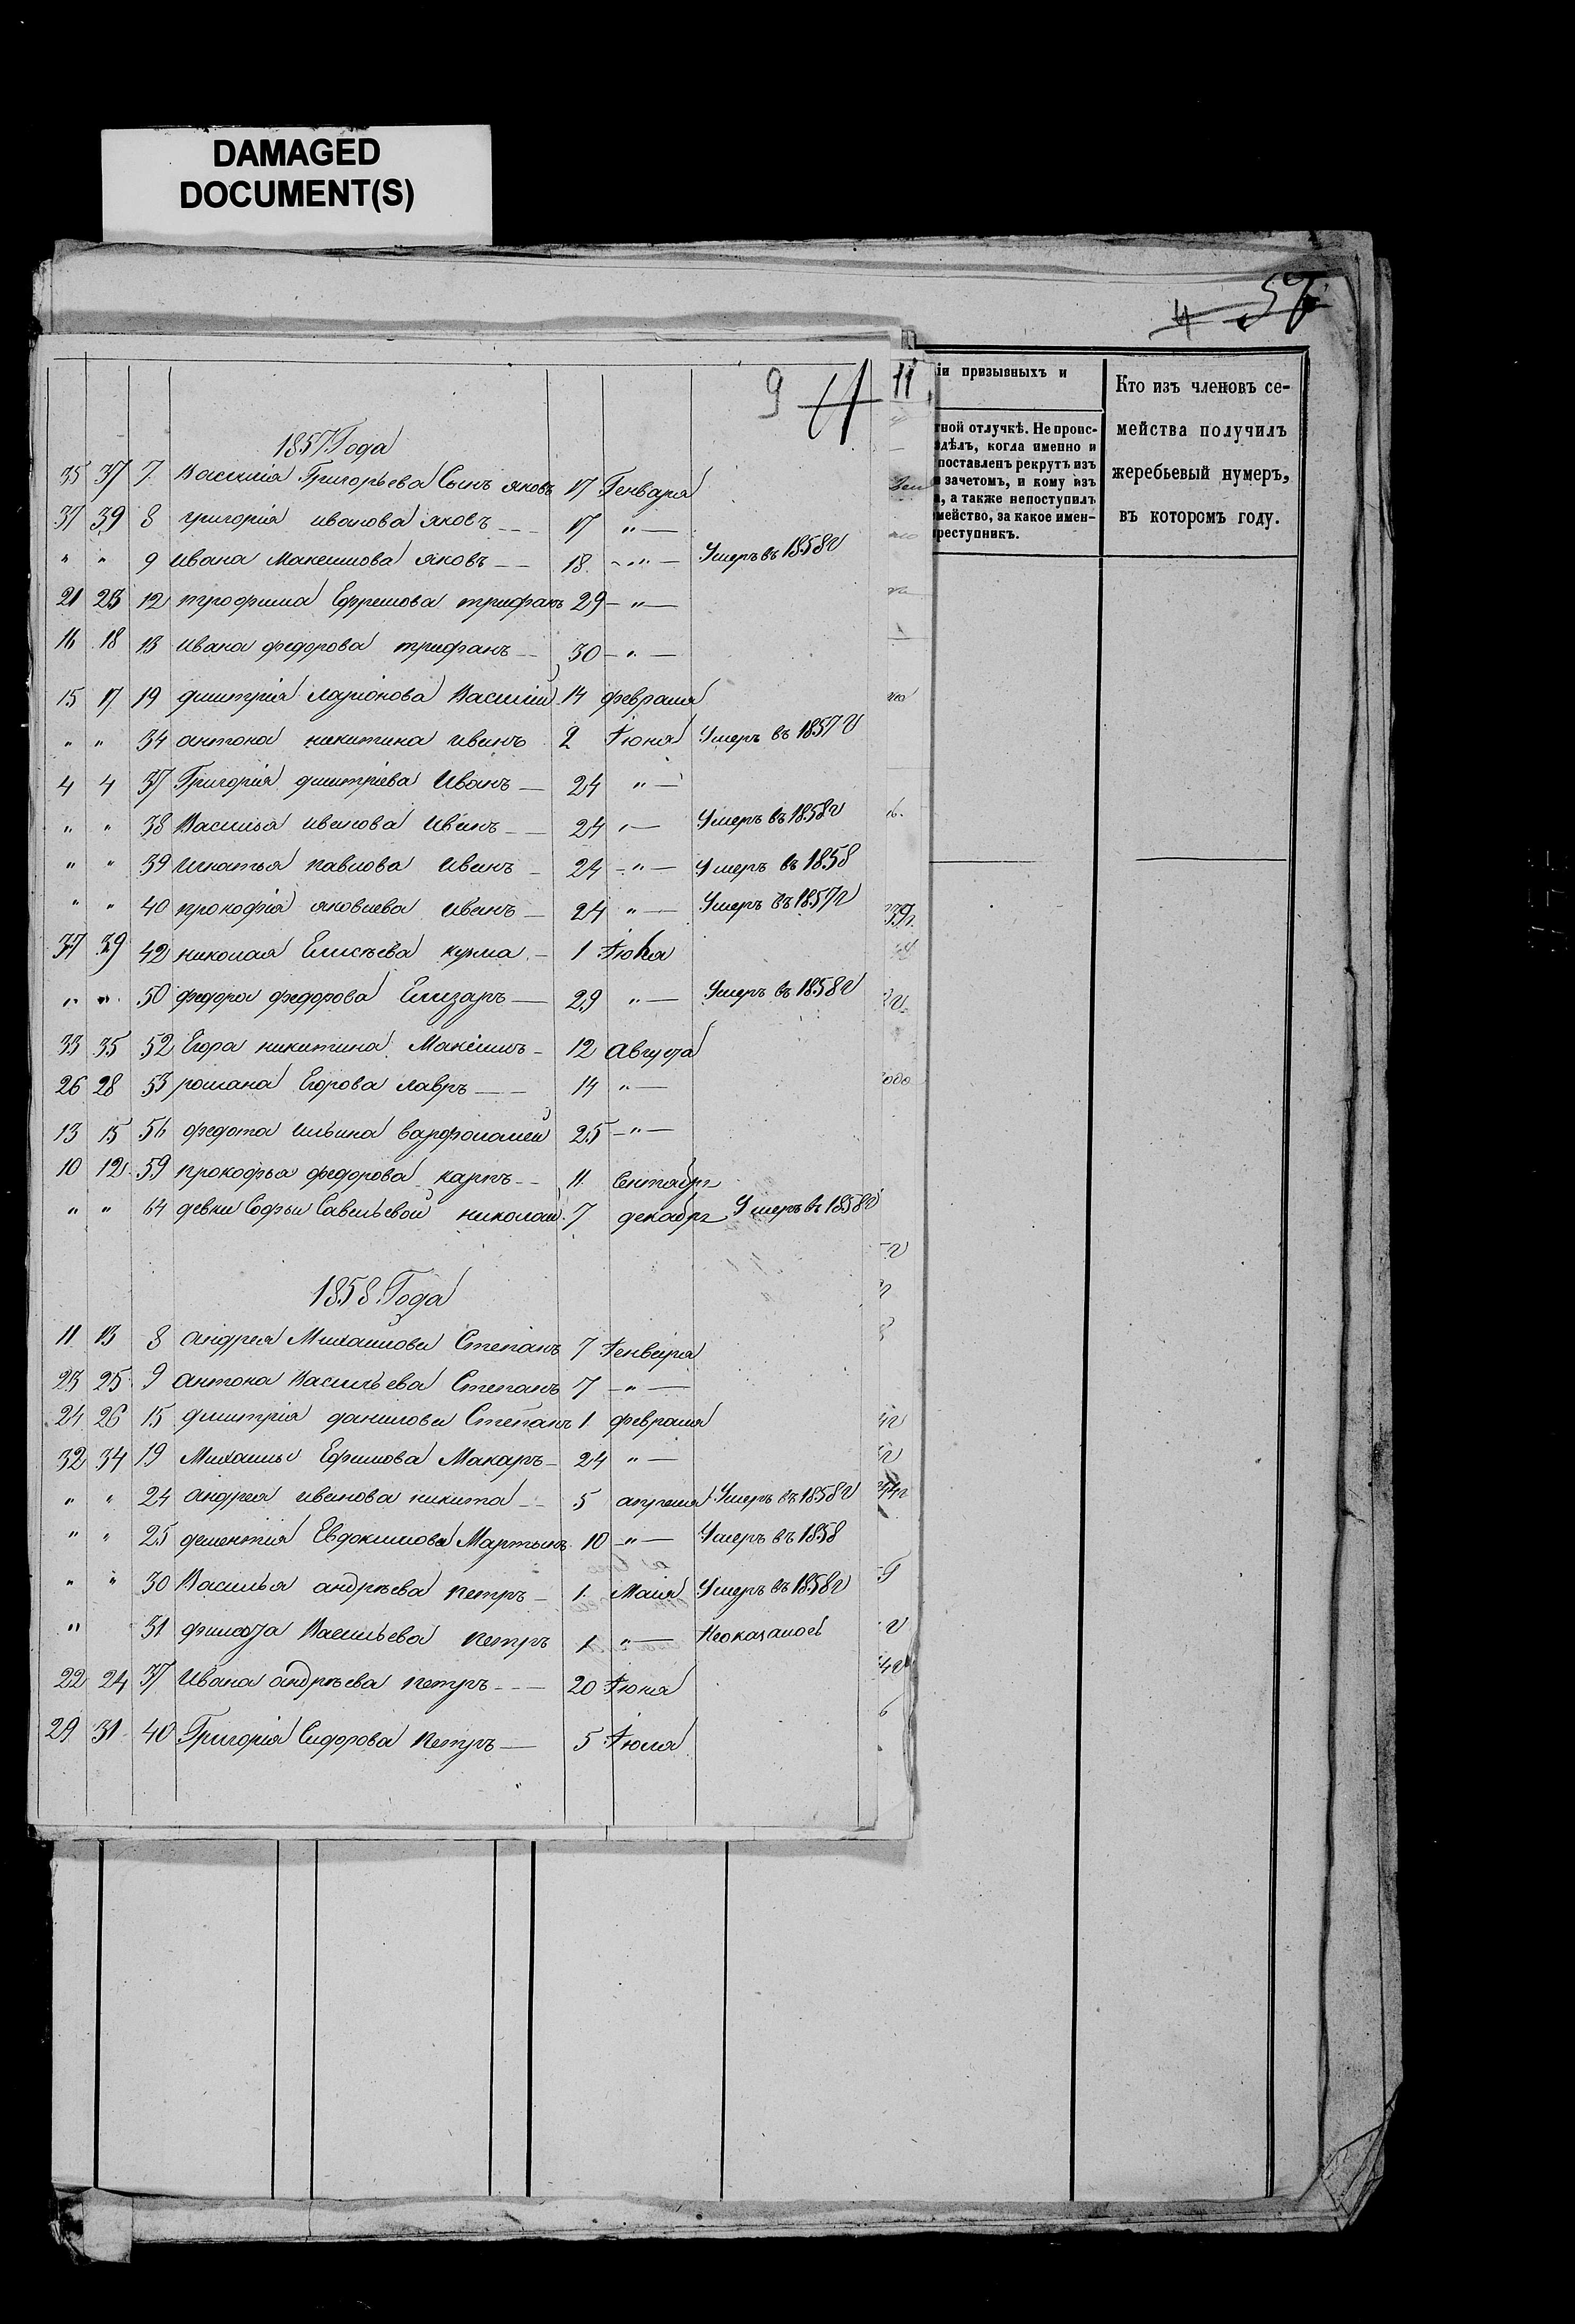 DAMAGED
DOCUMENT(S)
57
4
9
11
1857 Года
35 37 7 Василія Григорьева Сынъ яковъ 17 Генваря
37 39 8 григорія иванова яковъ 17 "
" " 9 ивана Максимова яковъ 18 " Умеръ въ 1858 г
21 23 12 трофима Ефремова трифанъ 29 "
16 18 13 ивана федорова трифанъ 30 "
15 17 19 дмитрія ларіонова Василій 14 февраля
" " 34 антона никитина иванъ 2 Іюня Умеръ въ 1857 г
4 4 37 Григорія дмитріева Иванъ 24 "
" " 38 Василья иванова иванъ 24 " Умеръ въ 1858 г
" " 39 игнатья павлова иванъ 24 " Умеръ въ 1858
" " 40 прокофія яковлева иванъ 24 " Умеръ въ 1857 г
37 39 42 николая Елисѣева кузма 1 Іюля
" " 50 федора федорова Елизаръ 29 " Умеръ въ 1858 г
33 35 52 Егора никитина Максимъ 12 Августа
26 28 53 романа Егорова лавръ 14 "
13 15 56 федота ильина варфоломей 25 "
10 12 59 прокофья федорова карпъ 11 Сентября
" " 64 девки Софьи Савельевой николай 7 декабря Умеръ въ 1858 г
1858 Года
11 13 8 андрея Михайлова Степанъ 7 Генваря
23 25 9 антона Васильева Степанъ 7 "
24 26 15 дмитрія данилова Степанъ 1 февраля
32 34 19 Михаилы Ефимова Макаръ 24 "
" " 24 андрея иванова никита 5 апреля Умеръ въ 1858 г
" " 25 дементія Евдокимова Мартынъ 10 " Умеръ въ 1858
" " 30 Василья андрѣева петръ 1 Маія Умеръ въ 1858 г
" 31 филата Васильева петръ 1 " Неоказалось
22 24 37 Ивана андрѣева петръ 20 Іюня
29 31 40 Григорія Сидорова петръ 5 Іюля
іи призывныхъ и
тной отлучкѣ. Не проис-
дѣлъ, когда именно и
поставленъ рекрутъ изъ
зачетомъ, и кому изъ
, а также непоступилъ
мейство, за какое имен-
реступникъ.
Кто изъ членовъ се-
мейства получилъ
жеребьевый нумеръ,
въ которомъ году.